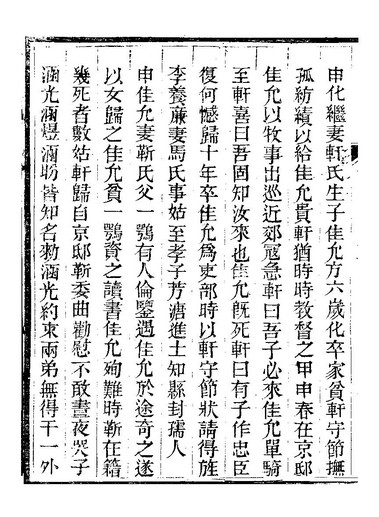 申化繼妻軒氏生子佳允方六歲化卒家貧軒守節撫
孤紡績以給佳允貴軒猶時時教督之甲申春在京邸
佳允以牧事出巡近郊寇急軒曰吾子必來佳允單騎
至軒喜曰吾固知汝來也佳允旣死軒曰有子作忠臣
復何憾歸十年卒佳允爲吏部時以軒守節狀請得旌
李養廉妻馬氏事姑至孝子芳進士知縣封孺人
申佳允妻靳氏父一鶚有人倫鑒遇佳允於途奇之遂
以女歸之佳允貧一鶚資之讀書佳允殉難時靳在籍
幾死者數姑軒歸自京邸靳委曲勸慰不敢晝夜哭子
涵光涵煜涵盼皆知名勑涵光約束兩弟無得干一外